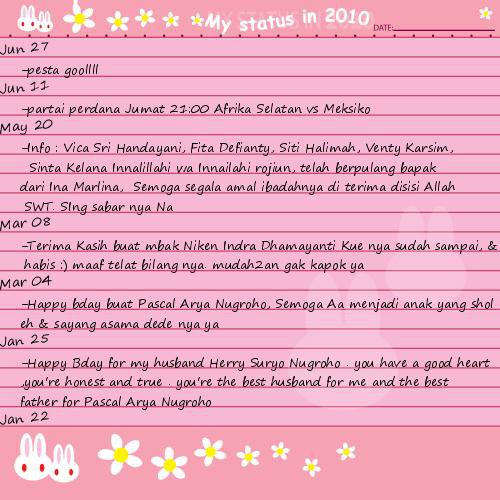 My status in 2010
DATE:
Jun 27
-pesta goollll
Jun 11
-partai perdana Jumat 21:00 Afrika Selatan vs Meksiko
May 20
-Info : Vica Sri Handayani, Fita Defianty, Siti Halimah, Venty Karsim,
Sinta Kelana Innalillahi wa Innailahi rojiun, telah berpulang bapak
dari Ina Marlina, Semoga segala amal ibadahnya di terima disisi Allah
SWT. SIng sabar nya Na
Mar 08
-Terima Kasih buat mbak Niken Indra Dhamayanti Kue nya sudah sampai, &
habis :) maaf telat bilang nya. mudah2an gak kapok ya
Mar 04
-Happy bday buat Pascal Arya Nugroho, Semoga Aa menjadi anak yang shol
eh & sayang asama dede nya ya
Jan 25
-Happy Bday for my husband Herry Suryo Nugroho . you have a good heart
,you're honest and true . you're the best husband for me and the best
father for Pascal Arya Nugroho
Jan 22